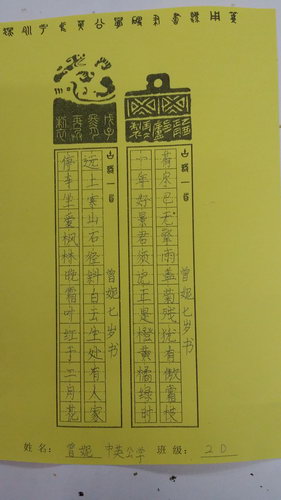 古诗一首 曾妮七岁书
荷尽已无擎雨盖菊残犹有傲霜枝
一年好景君须记正是橙黄橘绿时
古诗一首 曾妮七岁书
远上寒山石径斜白云生处有人家
停车坐爱枫林晚霜叶红于二月花
姓名: 曾妮 中英公学 班级: 2D